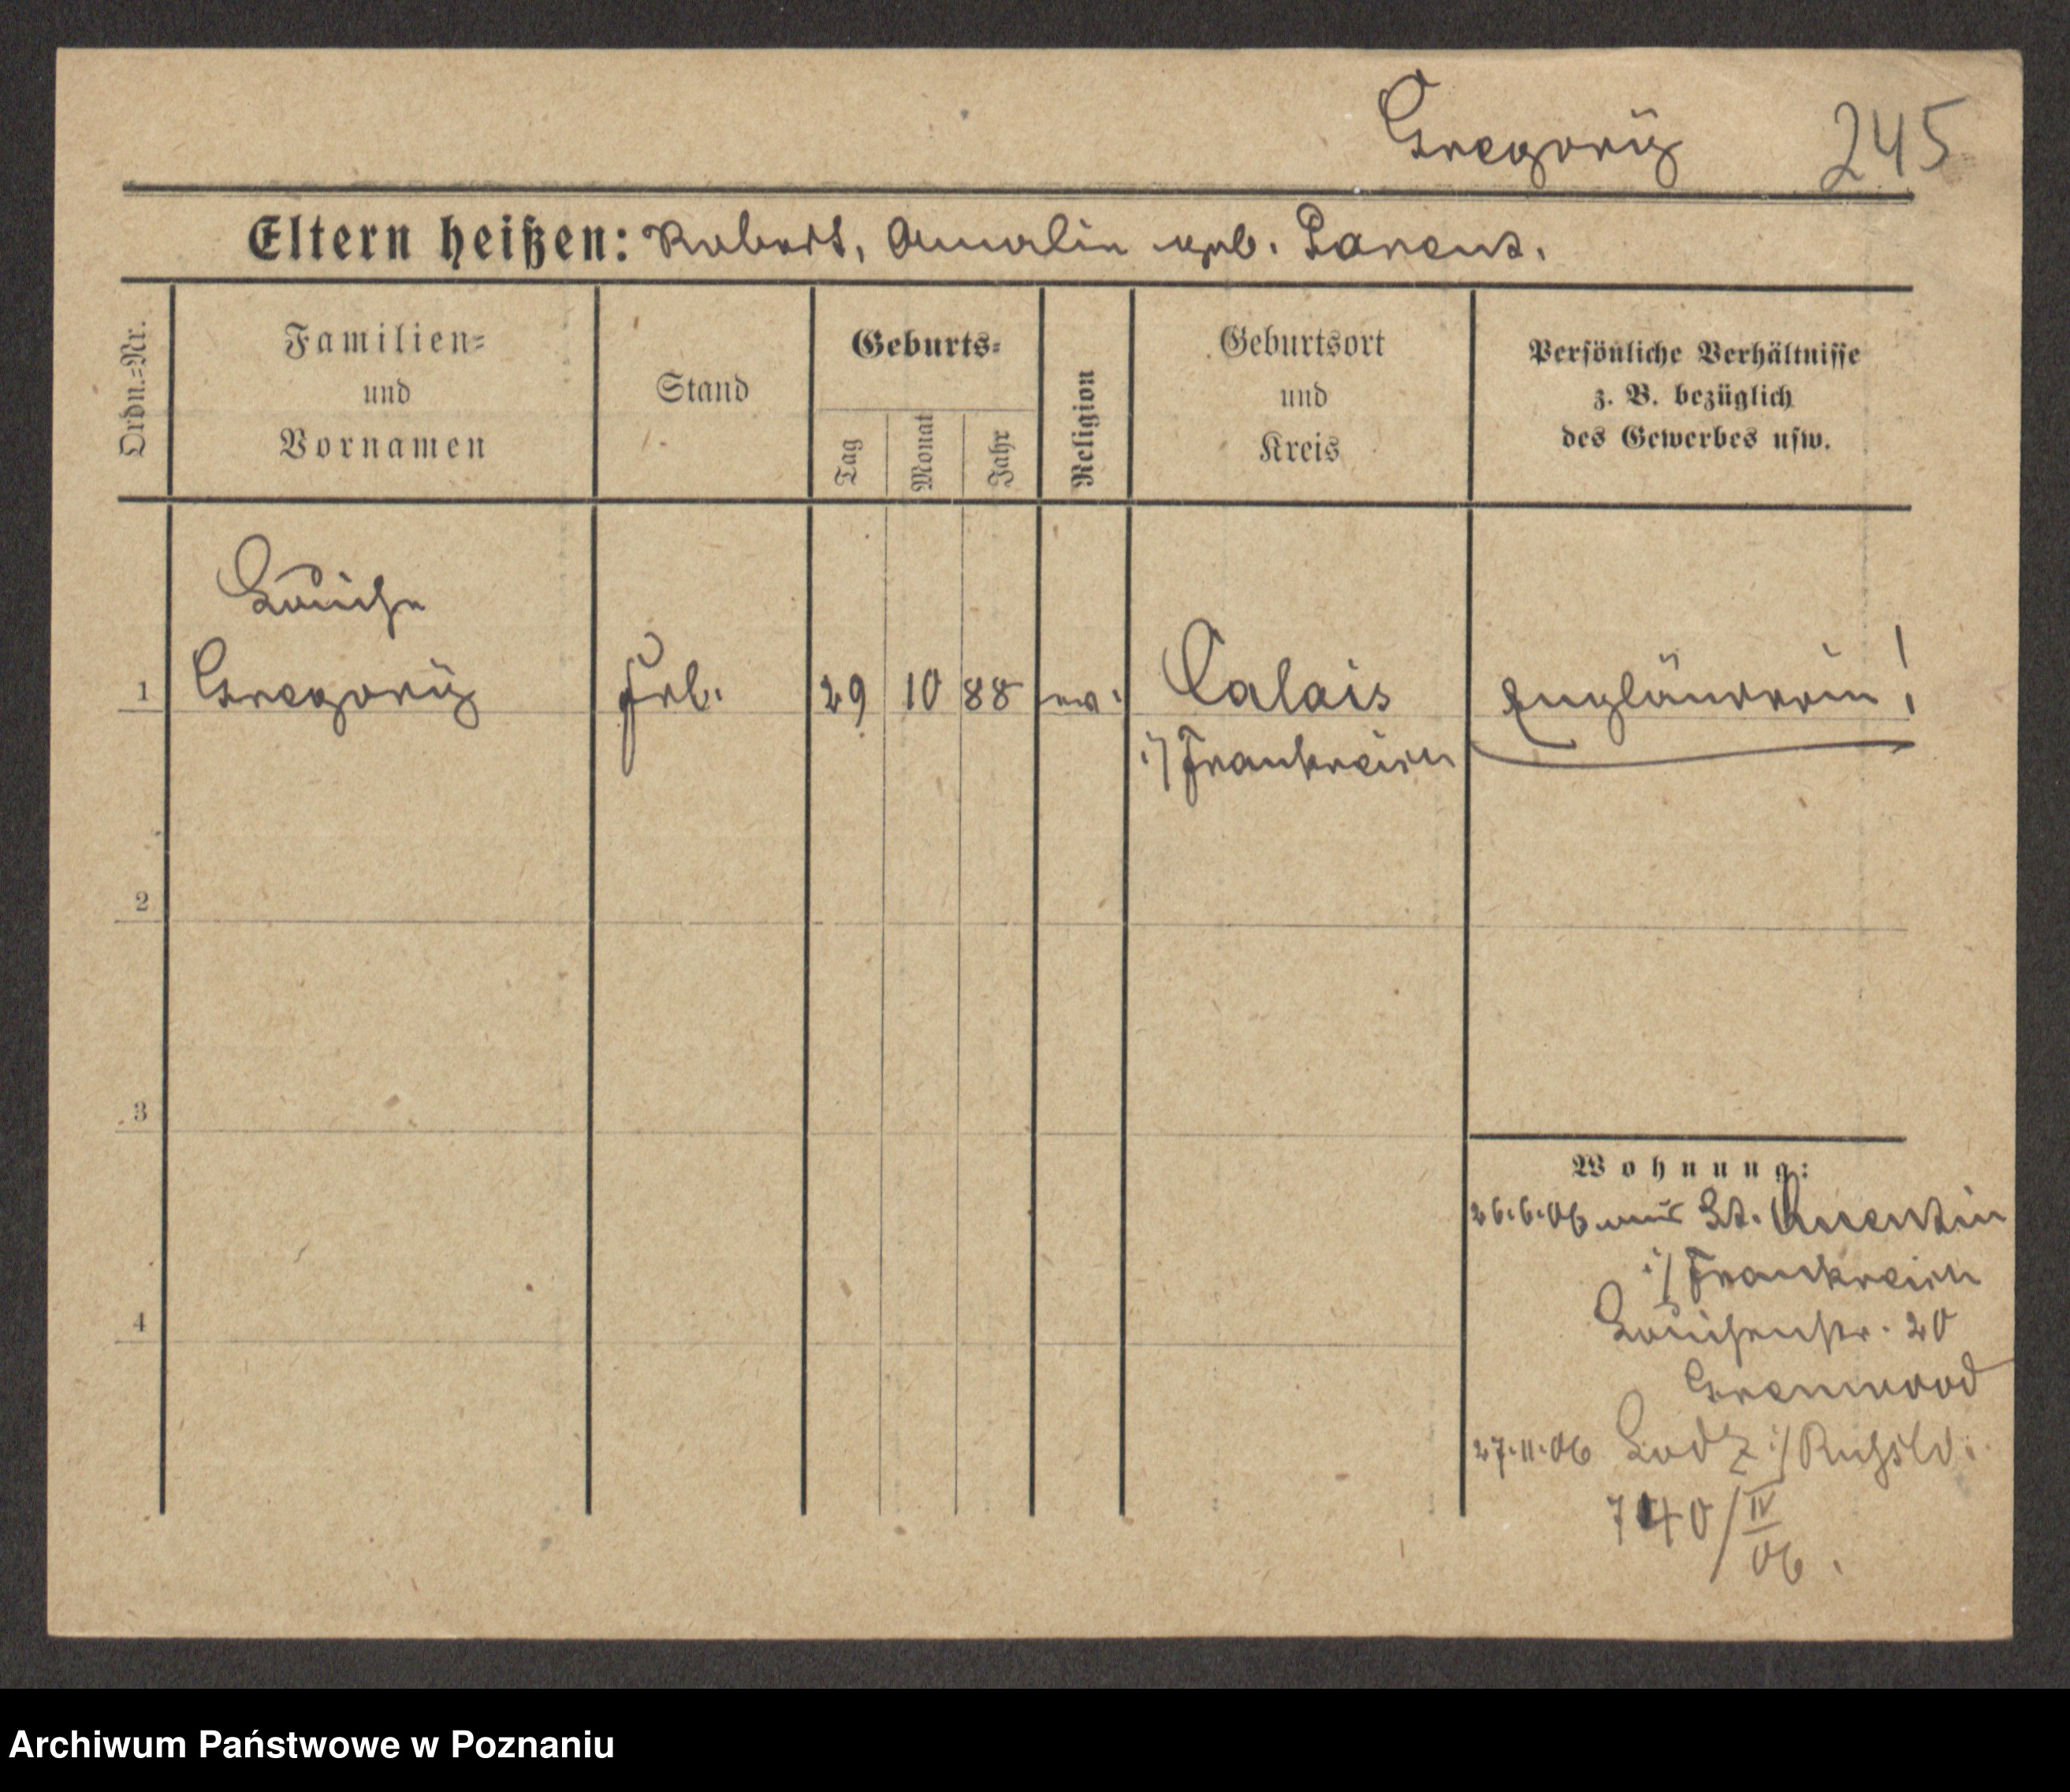 Gregory 245
Eltern heißen: Robert, Amalie geb. Parent.
Ordn.-Nr.
Familien-
und
Vornamen
Stand
Geburts-
Tag
Monat
Jahr
Religion
Geburtsort
und
Kreis
Persönliche Verhältnisse
z. B. bezüglich
des Gewerbes usw.
Louise
1 Gregory Frl. 29 10 88 ev. Calais Engländerin!
i/ Frankreich
2
3
4
Wohnung:
26.6.06 aus St. Quentin
i/ Frankreich
Louisenstr. 20
Grenwood
27.11.06 Lodz i/ Rußld.
740/IV
06.
Archiwum Państwowe w Poznaniu